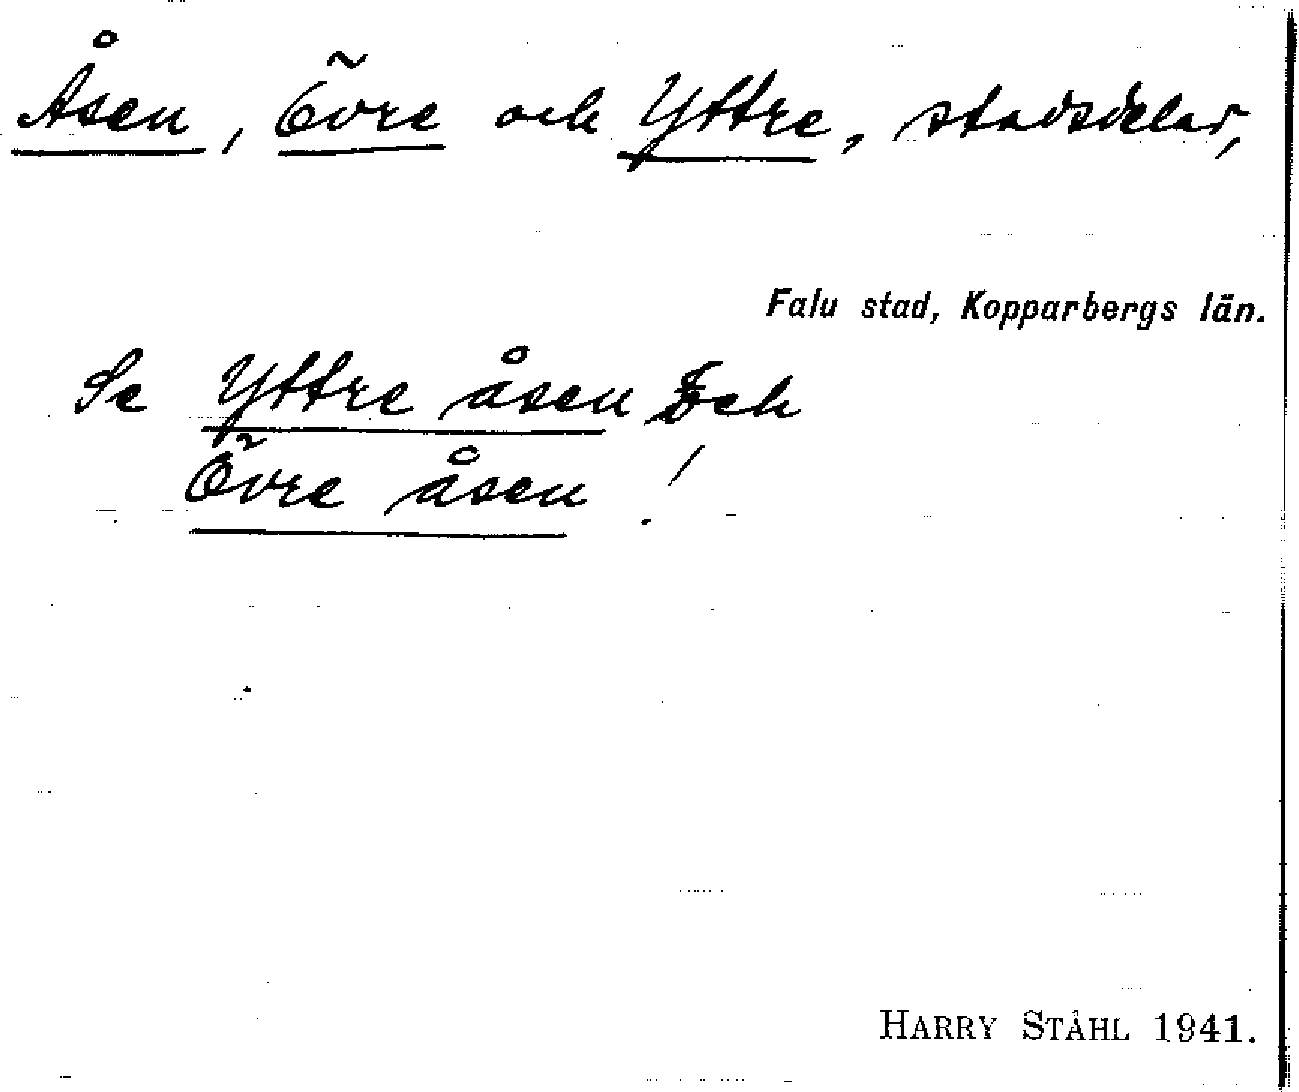 Åsen, Övre och Yttre, stadsdelar,
Falu stad, Kopparbergs län.
Se Yttre åsen och
Övre åsen!
HARRY STÅHL 1941.